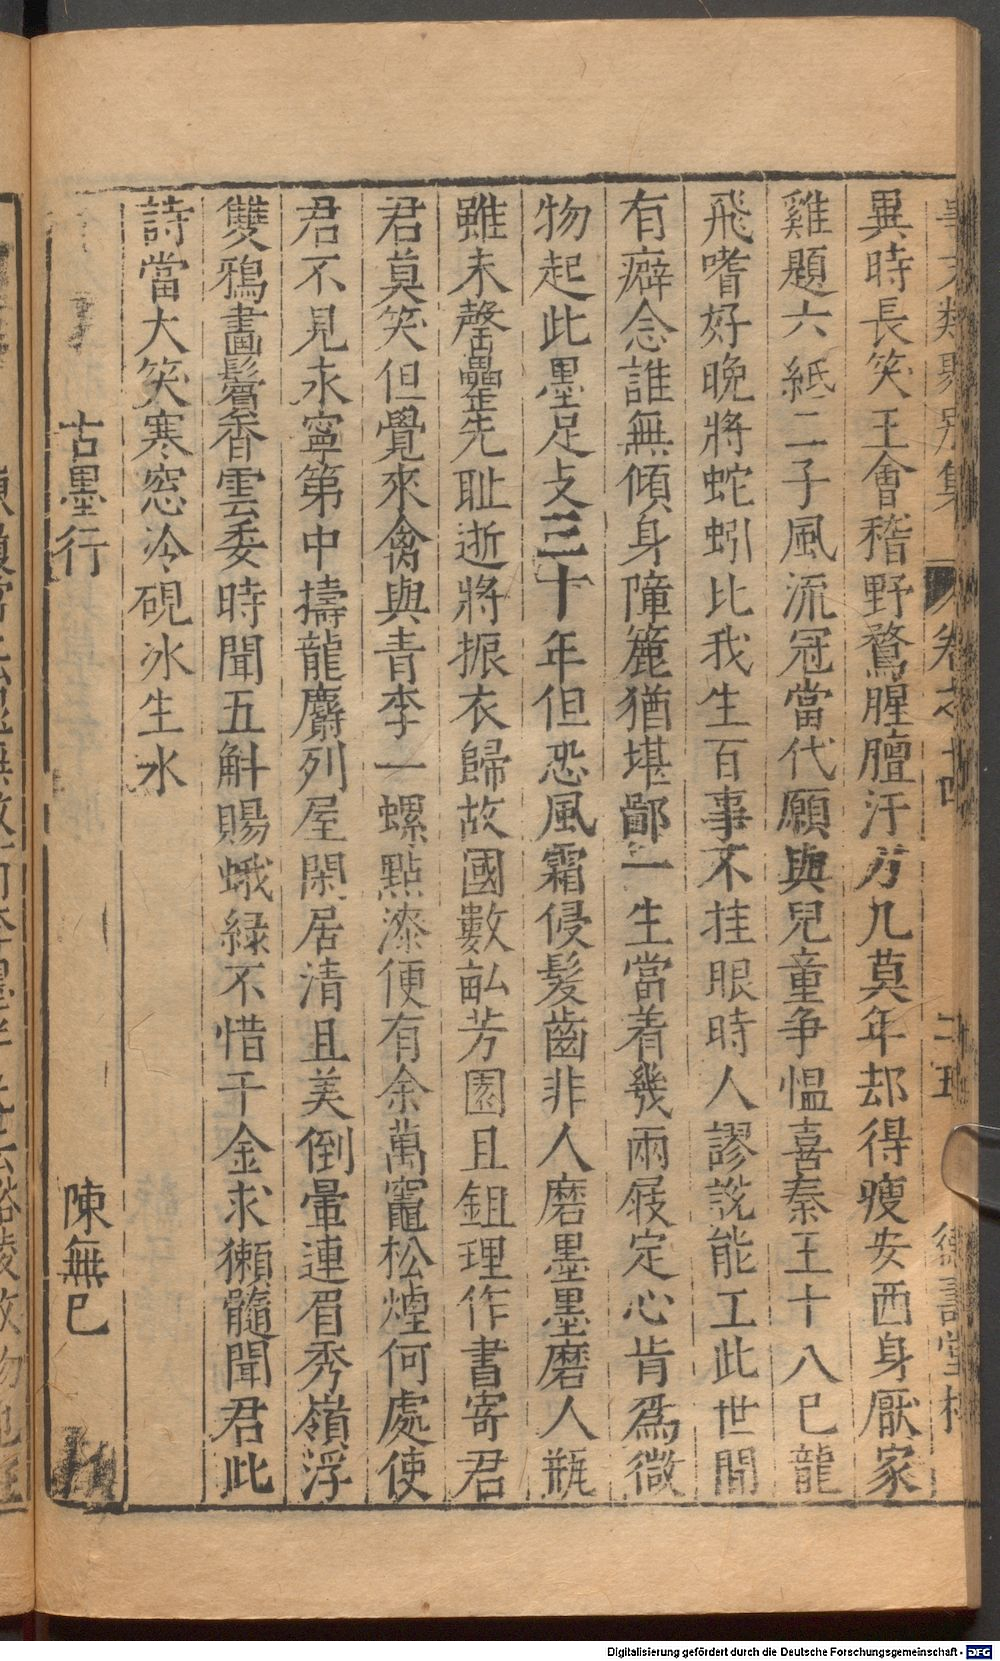 異時長笑王會稽野鶩腥膻汙方几莫年却得瘦安西身厭家
雞題六紙二子風流冠當代願與兒童争愠喜秦王十八已龍
飛嗜好晚將蛇蚓比我生百事不挂眼時人謬說能工此世間
有癖念誰無傾身障簏猶堪鄙一生當着幾兩屐定心肯為微
物起此墨足支三十年但恐風霜侵髮齒非人磨墨墨磨人瓶
雖未罄罍先耻逝將振衣歸故國數畆芳園且鉏理作書寄君
君莫笑但覺來禽與青李一螺點漆便有余萬竈松煙何處使
君不見永寧第中擣龍麝列屋閑居清且美倒暈連眉秀嶺浮
雙鴉畫鬢香雲委時聞五斛賜蛾緑不惜千金求獺髓聞君此
詩當大笑寒窓冷硯冰生水
古墨行 陳無已
Digitalisierung gefördert durch die Deutsche Forschungsgemeinschaft - DFG